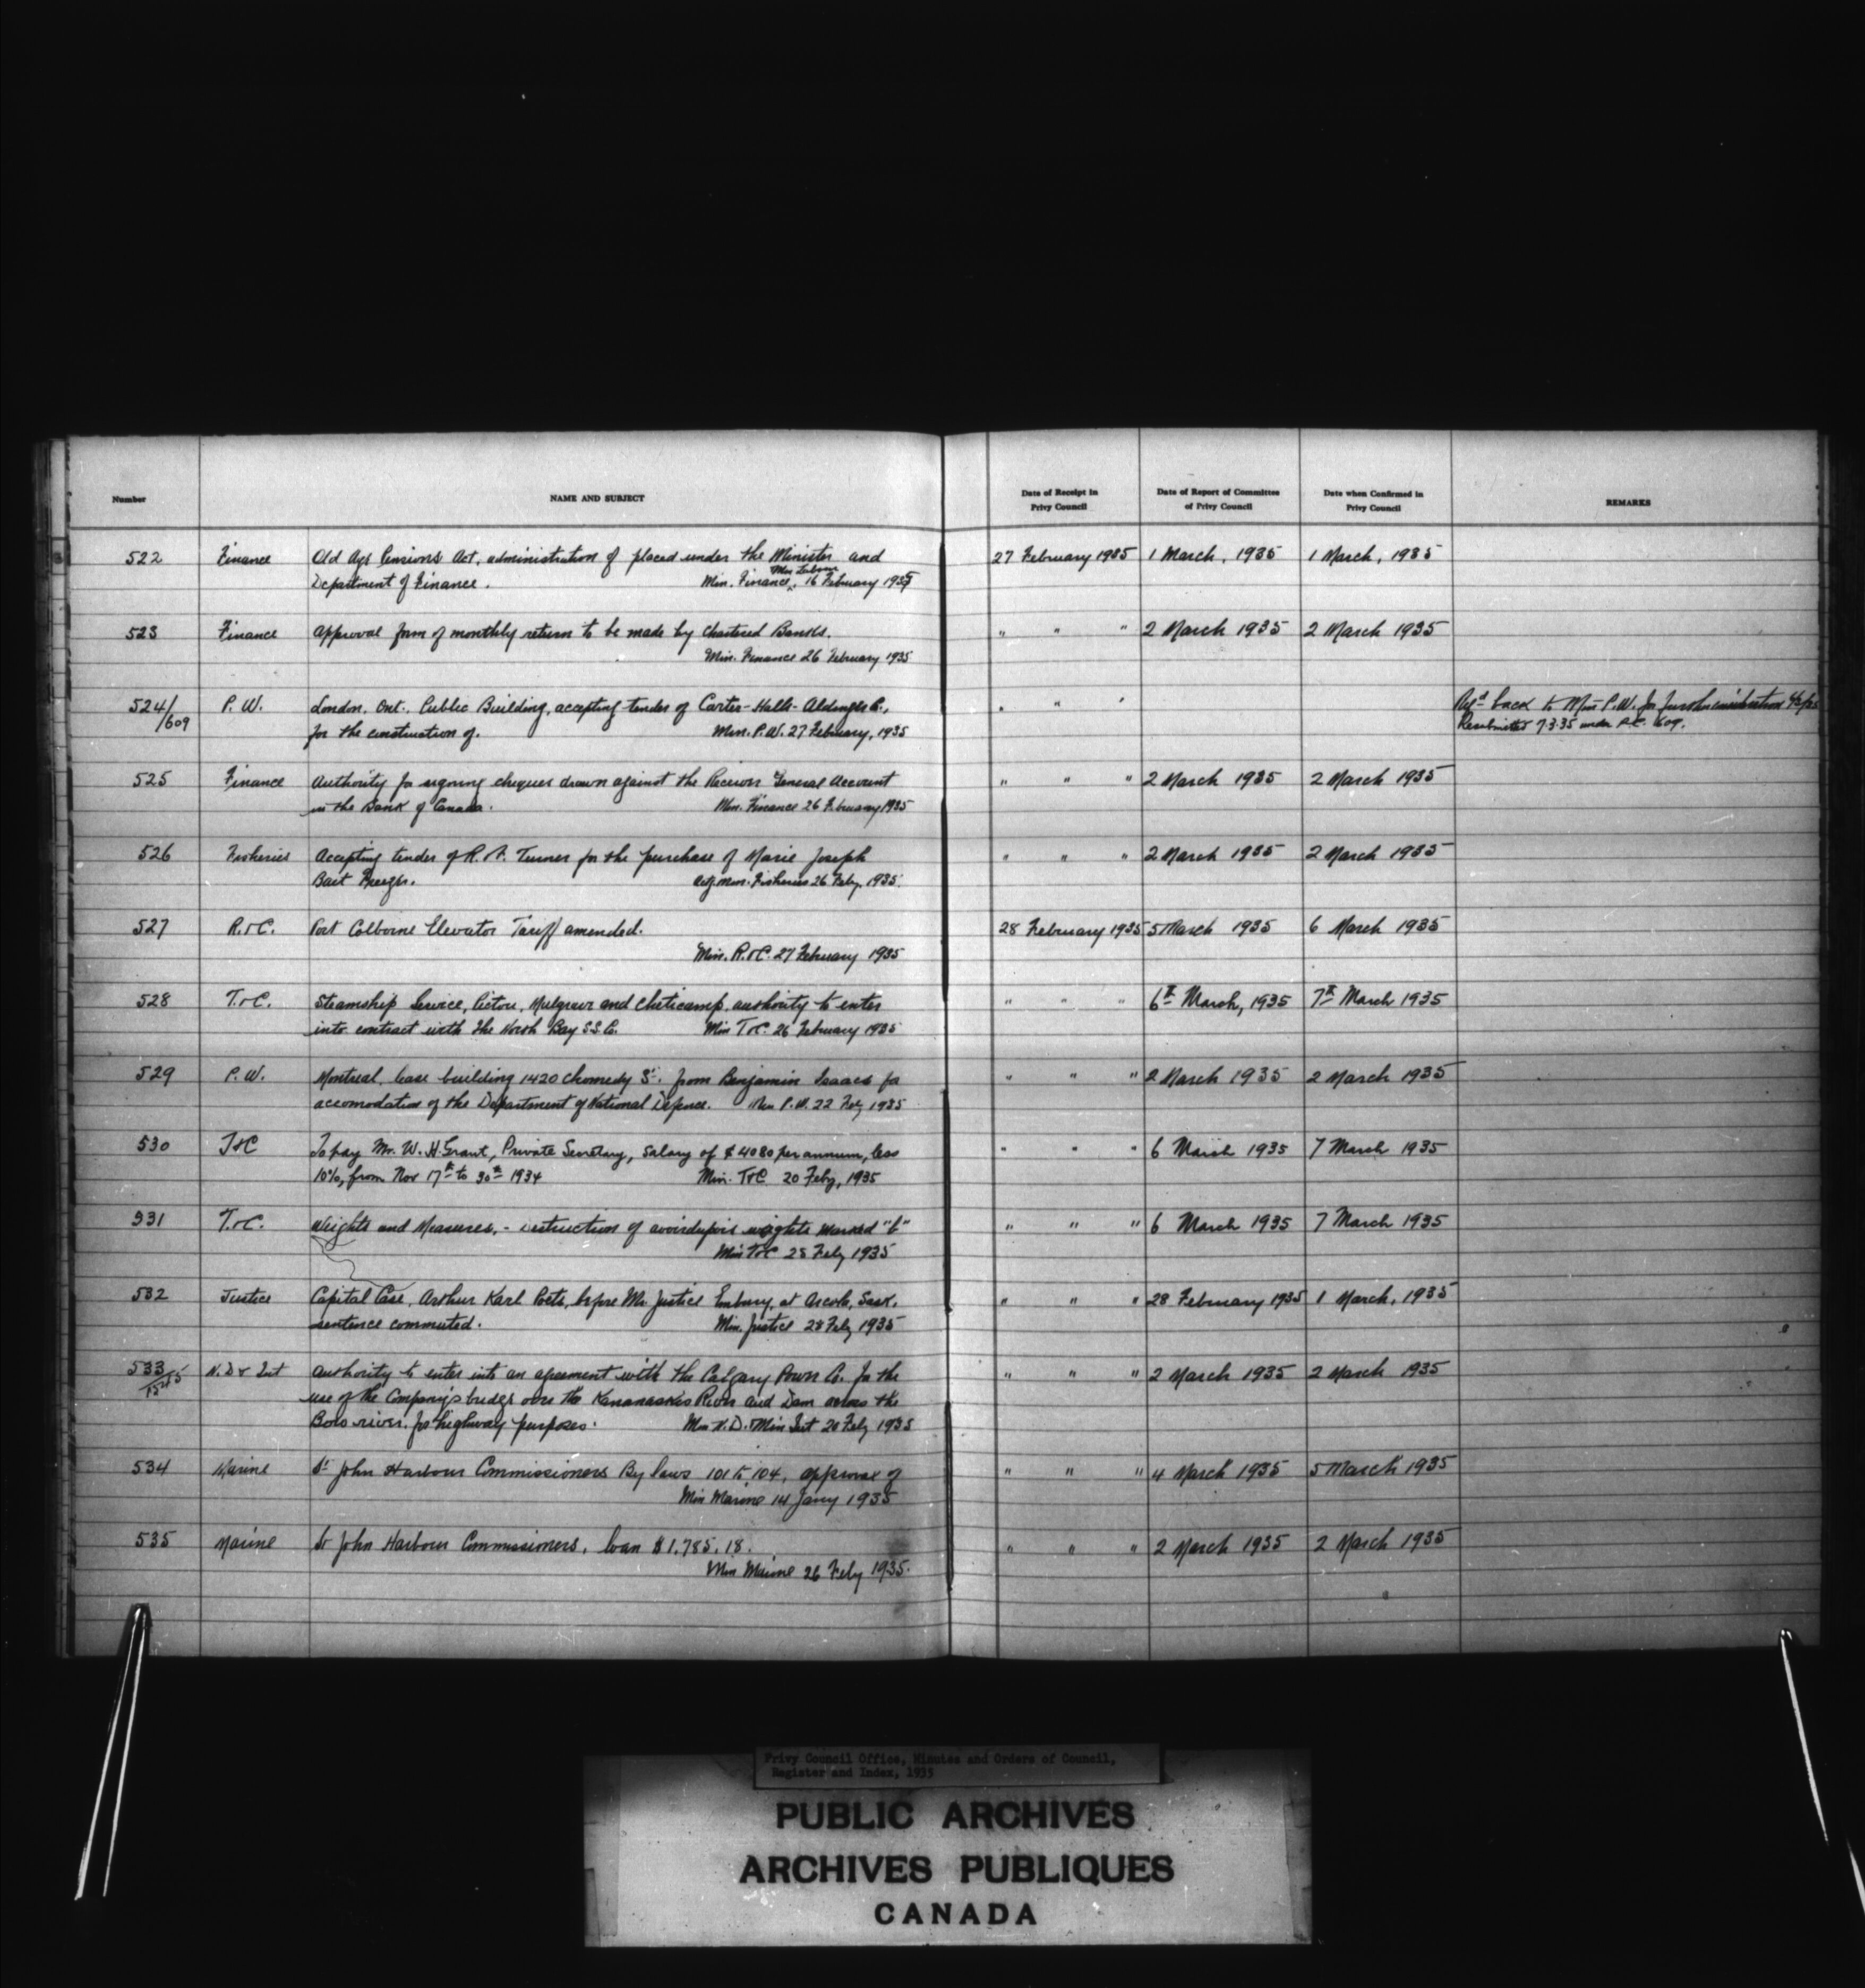 Number NAME AND SUBJECT Date of Receipt in Privy Council Date of Report of Committee of Privy Council Date when Confirmed in Privy Council REMARKS
522 Finance Old Age Pensions Act, administration of placed under the Minister and 27 February 1935 1 March, 1935 1 March, 1935
Department of Finance. Min. Finance, Min Labour 16 February 1935
523 Finance Approval form of monthly return to be made by Chartered Banks. " " " 2 March 1935 2 March 1935
Min. Finance 26 February 1935
524/609 P.W. London, Ont., Public Building, accepting tender of Carter-Halls-Aldinger Co., " " " Ref'd back to Min P.W. for further
for the construction of. Min. P.W. 27 February, 1935 Resubmitted 7.3.35 under P.C. 609.
525 Finance Authority for signing cheques drawn against the Receiver General Account " " " 2 March 1935 2 March 1935
in the Bank of Canada. Min. Finance 26 February 1935
526 Fisheries Accepting tender of Turner for the purchase of Marie Joseph " " " 2 March 1935 2 March 1935
Bait Freezer. Actg Min. Fisheries 26 Feby. 1935.
527 R.&C. Port Colborne Elevator Tariff amended. 28 February 1935 5 March 1935 6 March 1935
Min. R.&C. 27 February 1935
528 T.&C. Steamship Service, Pictou, Mulgrave and Cheticamp, authority to enter " " " 6th March, 1935 7th March 1935
into contract with the North Bay S.S. Co. Min T&C 26 February 1935
529 P.W. Montreal, lease building 1420 Chomedy St. from Benjamin Isaacs for " " " 2 March 1935 2 March 1935
accomodation of the Department of National Defence. Min P.W. 22 Feby 1935
530 T&C To pay Mr. W. H. Grant, Private Secretary, salary of $4080 per annum, less " " " 6 March 1935 7 March 1935
10%, from Nov 17th to 30th 1934 Min. T&C 20 Feby, 1935
531 T.&C. Weights and Measures, - destruction of avoirdupois weights marked " " " " 6 March 1935 7 March 1935
Min T&C 25 Feby 1935
532 Justice Capital Case, Arthur Karl Poets, before Mr. Justice Embury, at Arcola, Sask. " " " 28 February 1935 1 March, 1935
sentence commuted. Min. Justice 28 Feby 1935
533 N.D & Int Authority to enter into an agreement with the Calgary Power Co. for the " " " 2 March 1935 2 March 1935
use of the Company's bridge over the Kananaskis River and Dam across the
Bow river, for highway purposes. Min N.D. & Min Int 20 Feby 1935
534 Marine St John Harbour Commissioners By laws 101 to 104, approval of " " " 4 March 1935 5 March 1935
Min Marine 14 Jany 1935
535 Marine St John Harbour Commissioners, loan $1,785.18. " " " 2 March 1935 2 March 1935
Min Marine 26 Feby 1935.
Privy Council Office, Minutes and Orders of Council,
Register and Index, 1935
PUBLIC ARCHIVES
ARCHIVES PUBLIQUES
CANADA